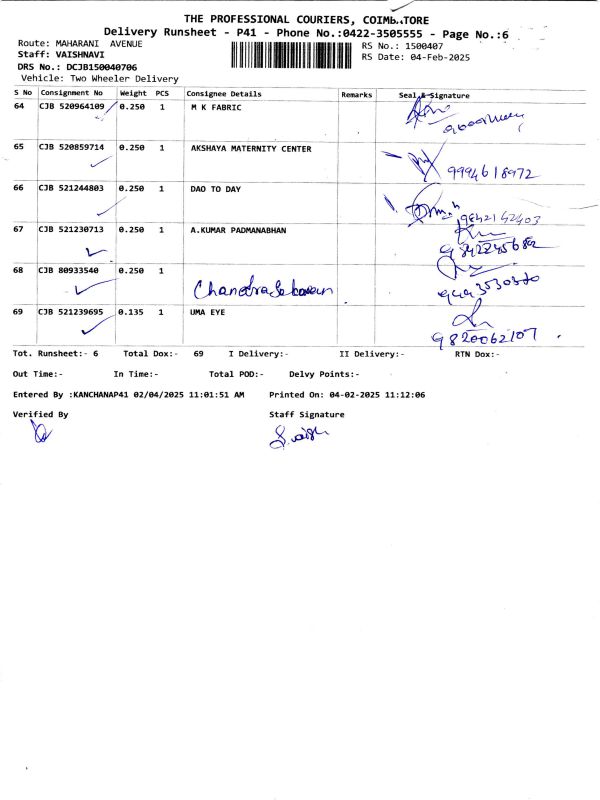 THE PROFESSIONAL COURIERS, COIMBATORE
Delivery Runsheet - P41 - Phone No.:0422-3505555 - Page No.:6
Route: MAHARANI AVENUE RS No.: 1500407
Staff: VAISHNAVI RS Date: 04-Feb-2025
DRS No.: DCJB150040706
Vehicle: Two Wheeler Delivery
S No Consignment No Weight PCS Consignee Details Remarks Seal & Signature
64 CJB 520964109 0.250 1 M K FABRIC
65 CJB 520859714 0.250 1 AKSHAYA MATERNITY CENTER
9994618972
66 CJB 521244803 0.250 1 DAO TO DAY
9842142403
67 CJB 521230713 0.250 1 A.KUMAR PADMANABHAN
68 CJB 80933540 0.250 1
Chandrasekaran
69 CJB 521239695 0.135 1 UMA EYE
9820062107
Tot. Runsheet:- 6 Total Dox:- 69 I Delivery:- II Delivery:- RTN Dox:-
Out Time:- In Time:- Total POD:- Delvy Points:-
Entered By :KANCHANAP41 02/04/2025 11:01:51 AM Printed On: 04-02-2025 11:12:06
Verified By Staff Signature